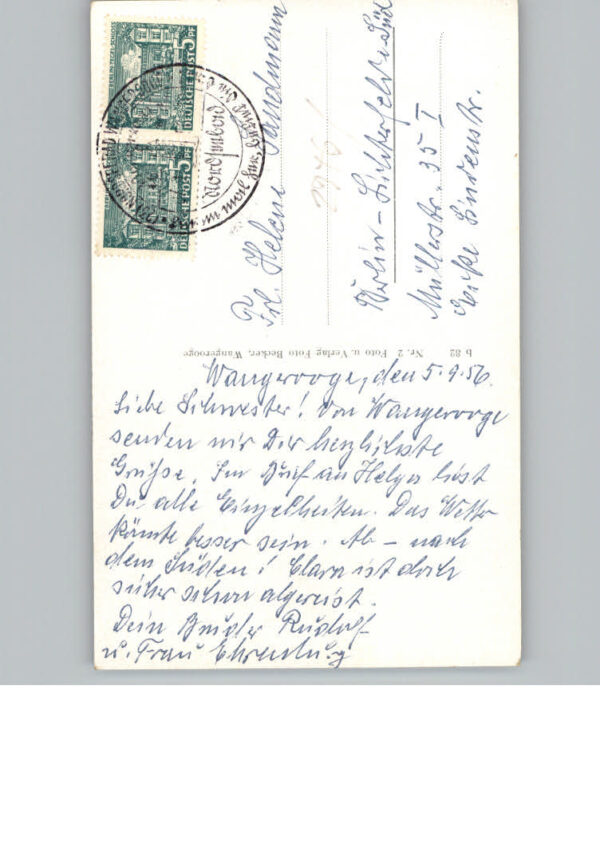 Wangerooge, den 5.9.56.
Liebe Schwester! Von Wangerooge
senden wir Dir herzlichste
Grüße. Im Brief an Helga liest
Du alle Einzelheiten. Das Wetter
könnte besser sein. Ab – nach
dem Süden! Clara ist doch
sicher schon abgereist.
Dein Bruder Rudolf
u. Frau
b 82 Nr. 2 Foto u. Verlag Foto Becker, Wangerooge
Frl. Helene Sandmann
Berlin-Lichterfelde-Süd
Müllerstr. 35 I
Ecke Lindenstr.
DEUTSCHE POST 5 PF
DEUTSCHE POST 5 PF
Nordseebad